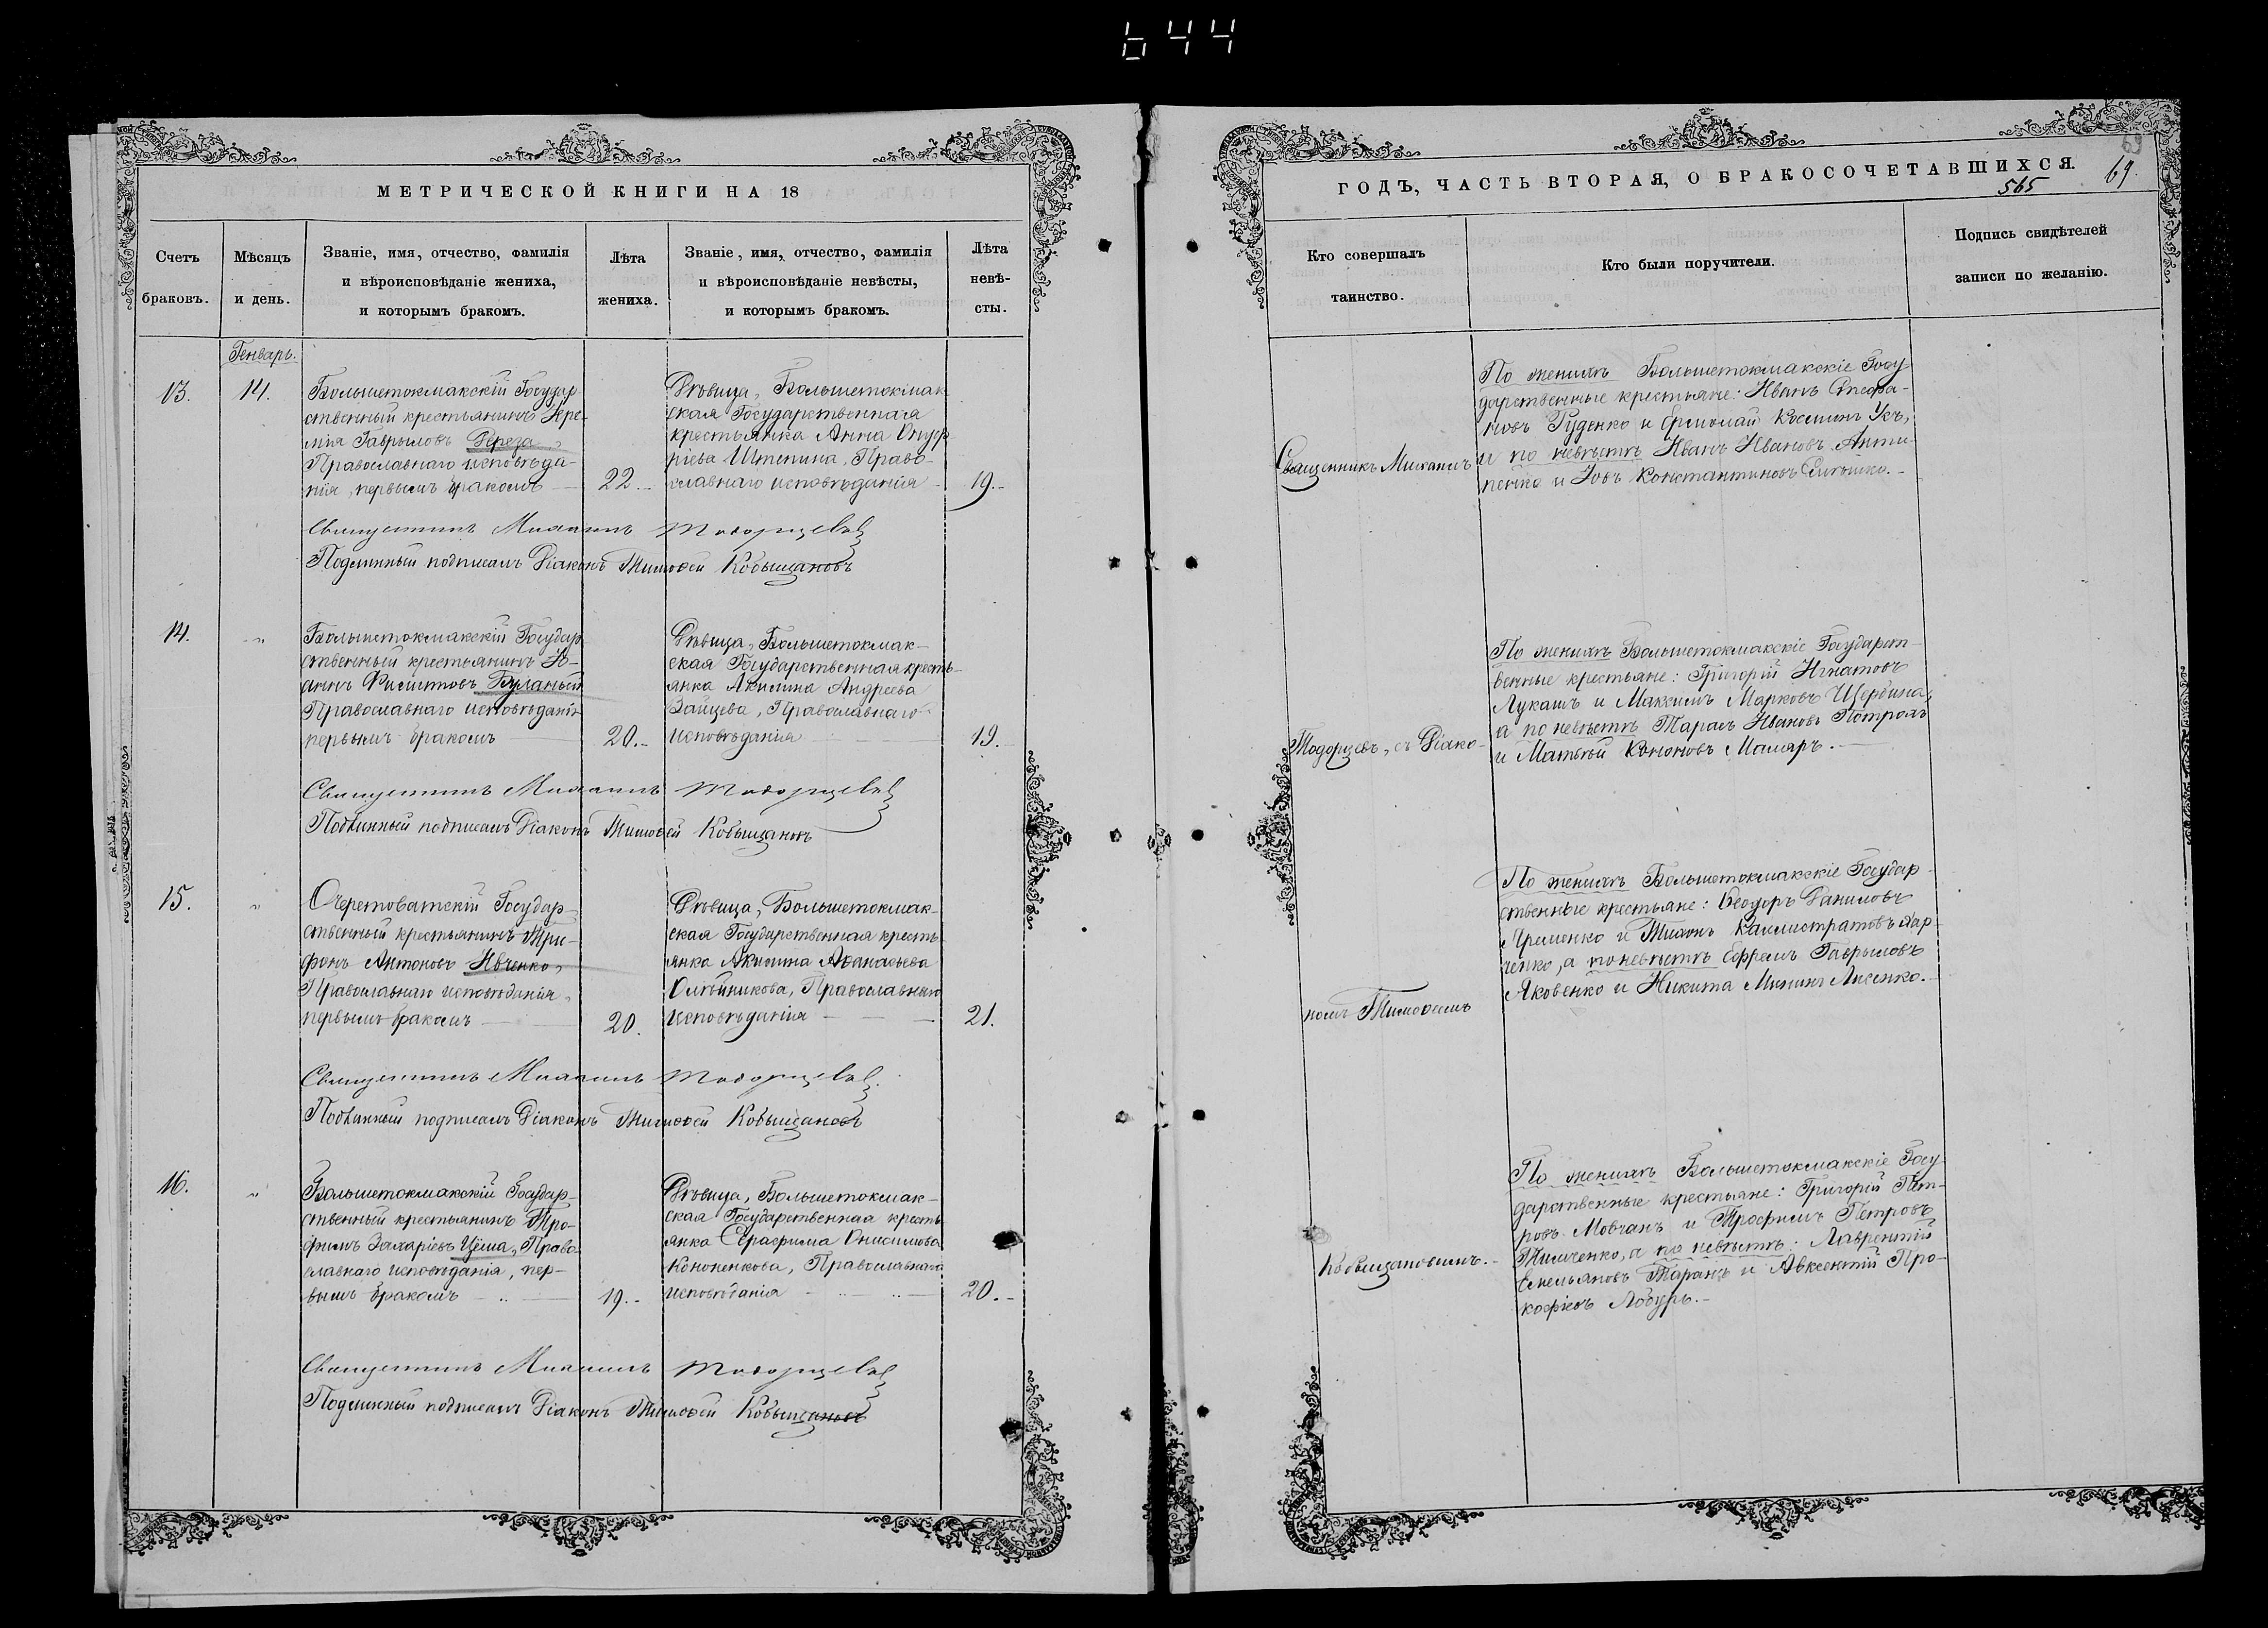 644
МЕТРИЧЕСКОЙ КНИГИ НА 18
Счетъ
браковъ.
Мѣсяцъ
и день.
Званіе, имя, отчество, фамилія
и вѣроисповѣданіе жениха,
и которымъ бракомъ.
Лѣта
жениха.
Званіе, имя, отчество, фамилія
и вѣроисповѣданіе невѣсты,
и которымъ бракомъ.
Лѣта
невѣ-
сты.
Генварь.
13.
14.
Большетокмакскій Государ
ственный крестьянинъ Іере-
мія Гаврыловъ
Православнаго исповѣда-
нія, первымъ бракомъ
22.
Дѣвица, Большетокмак
ская Государственная
крестьянка Анна Онуф
ріева Штепина, Право-
славнаго исповѣданія
19.
Священникъ Михаилъ Тодорцевъ
Подлинный подписалъ Діаконъ Тимоѳей Кобыщановъ
14.
"
Большетокмакскій Государ
ственный крестьянинъ Іо-
аннъ Филиповъ Буланый
Православнаго исповѣданія
первымъ бракомъ
20.
Дѣвица, Большетокмак-
ская Государственная кресть-
янка Акилина Андреева
Зайцева, Православнаго
исповѣданія
19.
Священникъ Михаилъ Тодорцевъ
Подлинный подписалъ Діаконъ Тимоѳей Кобыщановъ
15.
"
Очеретоватскій Государ-
ственный крестьянинъ Три-
фонъ Антоновъ Ивченко,
Православнаго исповѣданія,
первымъ бракомъ
20.
Дѣвица, Большетокмак-
ская Государственная кресть-
янка Акилина Аѳанасьева
Олѣйникова, Православнаго
исповѣданія
21.
Священникъ Михаилъ Тодорцевъ
Подлинный подписалъ Діаконъ Тимоѳей Кобыщановъ
16.
"
Большетокмакскій Государ-
ственный крестьянинъ Тро-
фимъ Захаріевъ Цёма, Право
славнаго исповѣданія, пер-
вымъ бракомъ
19.
Дѣвица, Большетокмак-
ская Государственная кресть
янка Серафима Онисимова
Кононенкова, Православнаго
исповѣданія
20.
Священникъ Михаилъ Тодорцевъ
Подлинный подписалъ Діаконъ Тимоѳей Кобыщановъ
69
ГОДЪ, ЧАСТЬ ВТОРАЯ, О БРАКОСОЧЕТАВШИХСЯ.
565
69.
Кто совершалъ
таинство.
Кто были поручители.
Подпись свидѣтелей
записи по желанію.
Священникъ Михаилъ
Тодорцевъ, съ Діако-
номъ Тимоѳеемъ
Кобыщановымъ.
По женихѣ Большетокмакскіе Госу-
дарственные крестьяне: Иванъ Стефа-
новъ Руденко и Ермолай Косминъ Усъ,
и по невѣстѣ Иванъ Ивановъ Анти
пенко и Іовъ Константиновъ
По женихѣ Большетокмакскіе Государст-
венные крестьяне: Григорій Игнатовъ
Лукашъ и Максимъ Марковъ Щербина,
а по невѣстѣ Тарасъ Ивановъ
и Матвѣй Кононовъ Маляръ.
По женихѣ Большетокмакскіе Государ-
ственные крестьяне: Ѳеодоръ Даниловъ
Яременко и Тихонъ Каллистратовъ Хар-
ченко, а по невѣстѣ Ефремъ Гаврыловъ
Яковенко и Никита Мининъ Лисенко.
По женихѣ Большетокмакскіе Госу-
дарственные крестьяне: Григорій Пет-
ровъ Мовчанъ и Трофимъ Петровъ
Тимченко, а по невѣстѣ: Лаврентій
Емельяновъ Таранъ и Авксентій Про-
кофіевъ Лобуръ.